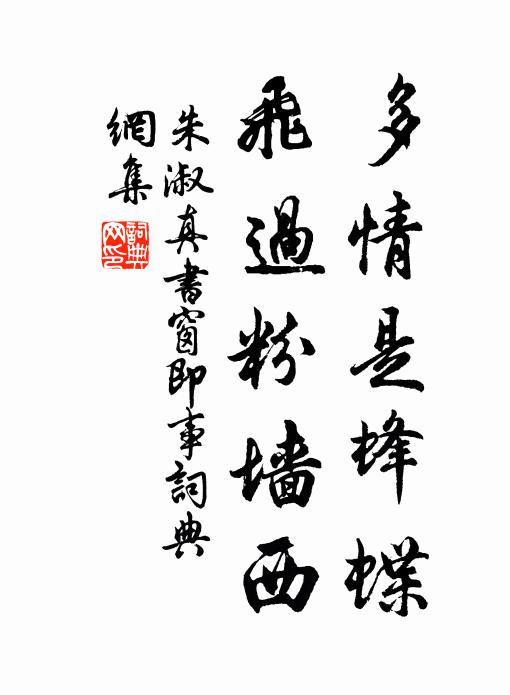 多情是蜂蝶
飛過粉墻西
朱淑真書窗即事詞典
網集
詞典
网印